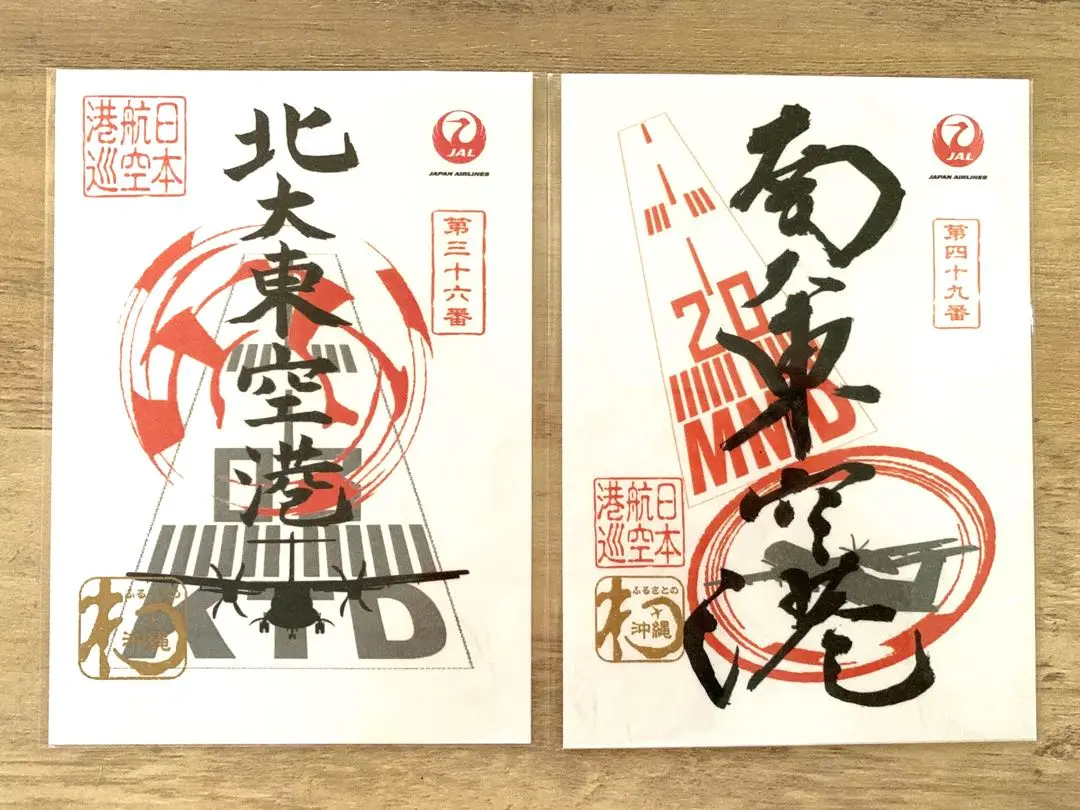 日本
航空
港巡
北大東空港
JAL
JAPAN AIRLINES
第三十六番
KTD
沖縄
南大東空港
JAL
JAPAN AIRLINES
第四十九番
20
MMD
日本
航空
港巡
ふるさとの
沖縄